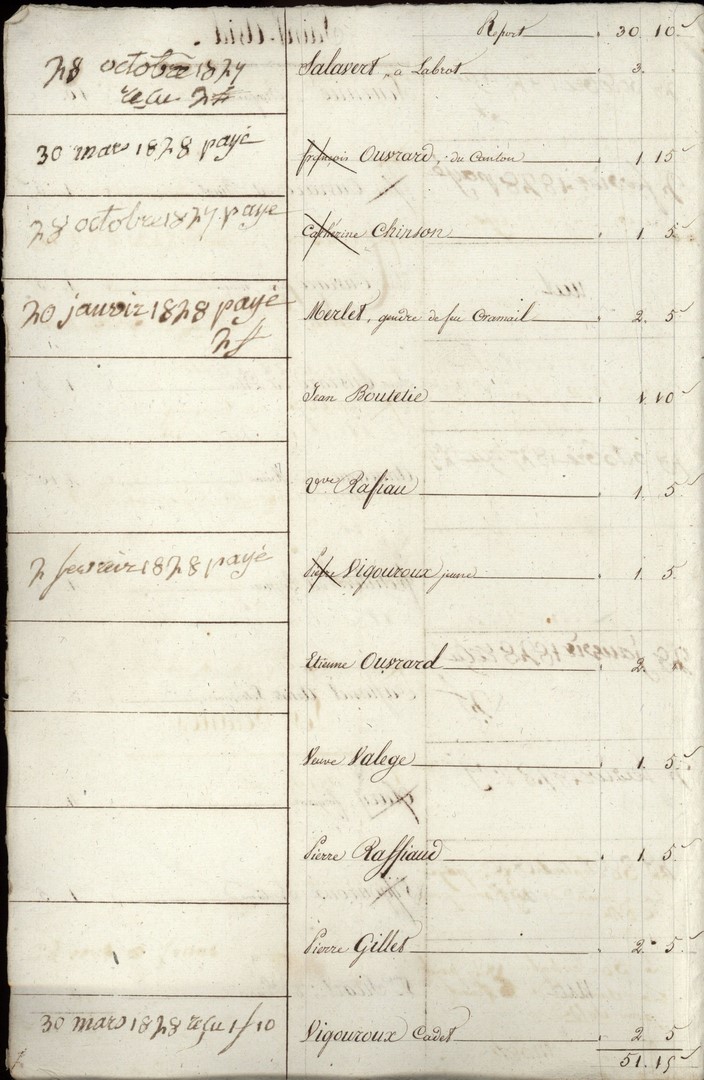 Report 30. 10.
28 octobre 1827
recu 2#
Salavert, a Labrot 3.
30 mars 1828 payé
françois Ouvrard, du Canton 1. 15
28 octobre 1827 payé
Catherine Chinson 1. 5
20 janvir 1828 payé
2 f
Merlet, gendre de feu Cramail 2. 5
Jean Boutelie 1. 10
Vve Rafiau 1. 5
2 fevrir 1828 payé
Pierre Vigouroux jeune 1. 5
Etienne Ouvrard 2.
Veuve Valege 1. 5
Pierre Raffiaud 1. 5
Pierre Gillet 2. 5
30 mars 1828 reçu 1 f 10
Vigouroux Cadet 2. 5
51. 15